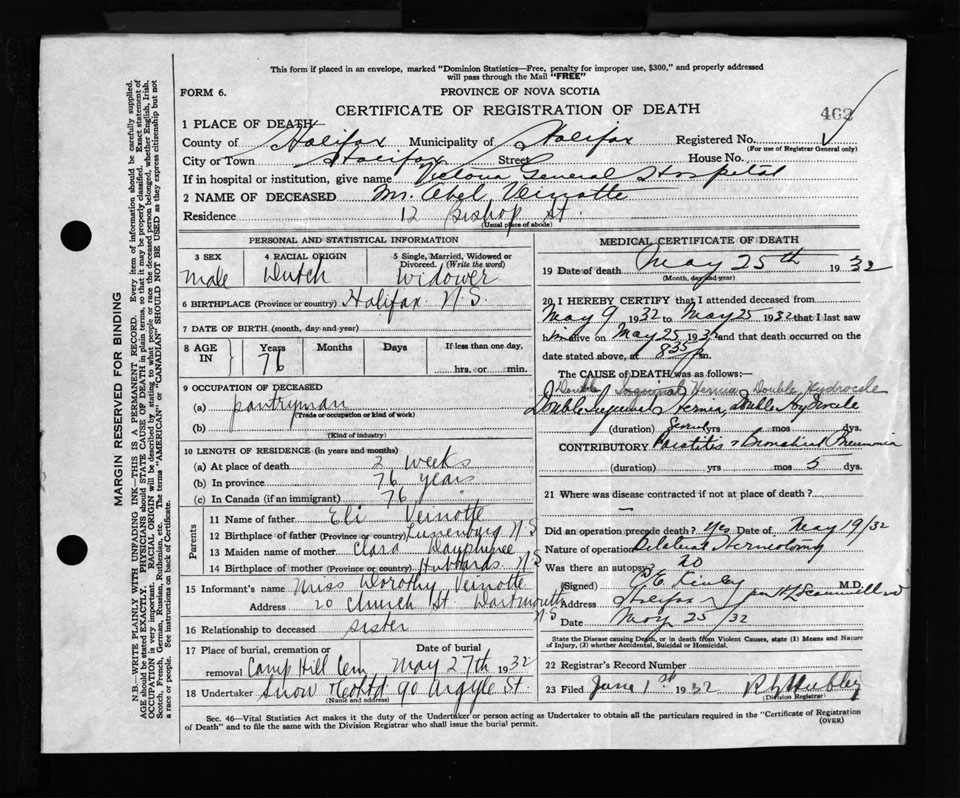 This form if placed in an envelope, marked "Dominion Statistics—Free, penalty for improper use, $300," and properly addressed
will pass through the Mail "FREE"
FORM 6.
PROVINCE OF NOVA SCOTIA
CERTIFICATE OF REGISTRATION OF DEATH
462
1 PLACE OF DEATH
County of Halifax Municipality of Halifax Registered No.
(For use of Registrar General only)
City or Town Halifax Street House No.
If in hospital or institution, give name Victoria General Hospital
2 NAME OF DECEASED Mr. Abel Veinotte
Residence 12 Bishop St.
(Usual place of abode)
PERSONAL AND STATISTICAL INFORMATION
3 SEX Male
4 RACIAL ORIGIN Dutch
5 Single, Married, Widowed or Divorced. (Write the word) Widower
6 BIRTHPLACE (Province or country) Halifax N.S.
7 DATE OF BIRTH (month, day and year)
8 AGE IN Years 76 Months Days If less than one day, hrs. or min.
9 OCCUPATION OF DECEASED
(a) pantryman
(Trade or occupation or kind of work)
(b)
(Kind of industry)
10 LENGTH OF RESIDENCE (in years and months)
(a) At place of death 2 weeks
(b) In province 76 years
(c) In Canada (if an immigrant) 76 "
Parents
11 Name of father Eli Veinotte
12 Birthplace of father (Province or country) Lunenburg N.S
13 Maiden name of mother Clara Dauphinee
14 Birthplace of mother (Province or country) Hubbards N.S
15 Informant's name Miss Dorothy Veinotte
Address 20 Church St. Dartmouth N.S
16 Relationship to deceased sister
17 Place of burial, cremation or removal Camp Hill Cem
Date of burial May 27th 1932
18 Undertaker Snow & Co Ltd 90 Argyle St.
(Name and address)
MEDICAL CERTIFICATE OF DEATH
19 Date of death May 25th 1932
(Month, day and year)
20 I HEREBY CERTIFY that I attended deceased from
May 9 1932 to May 25 1932 that I last saw
him alive on May 25 1932 and that death occurred on the
date stated above, at 8 35 m.
The CAUSE of DEATH was as follows:—
Double Inguinal Hernia, Double Hydrocele
Double Inguinal Hernia, Double Hydrocele
(duration) yrs mos dys.
CONTRIBUTORY & Bronchial Pneumonia
(duration) yrs mos 5 dys.
21 Where was disease contracted if not at place of death?
—
Did an operation precede death? Yes Date of May 19/32
Nature of operation Bilateral Herniotomy
Was there an autopsy? no
(Signed) M.D.
Address Halifax
Date May 25/32
State the Disease causing Death, or in death from Violent Causes, state (1) Means and Nature
of Injury, (2) whether Accidental, Suicidal or Homicidal.
22 Registrar's Record Number
23 Filed June 1st 1932
(Division Registrar)
Sec. 46—Vital Statistics Act makes it the duty of the Undertaker or person acting as Undertaker to obtain all the particulars required in the "Certificate of Registration
of Death" and to file the same with the Division Registrar who shall issue the burial permit.
(OVER)
MARGIN RESERVED FOR BINDING
N.B.—WRITE PLAINLY WITH UNFADING INK—THIS IS A PERMANENT RECORD. Every item of information should be carefully supplied.
AGE should be stated EXACTLY. PHYSICIANS should STATE CAUSE OF DEATH in plain terms, so that it may be properly classified. Exact statement of
OCCUPATION is very important. RACIAL ORIGIN will be described by stating to what people or race the deceased person belonged, whether English, Irish,
Scotch, French, German, Russian, Ruthenian, etc. The terms "AMERICAN" or "CANADIAN" SHOULD NOT BE USED as they express citizenship but not
a race or people. See instructions on back of Certificate.